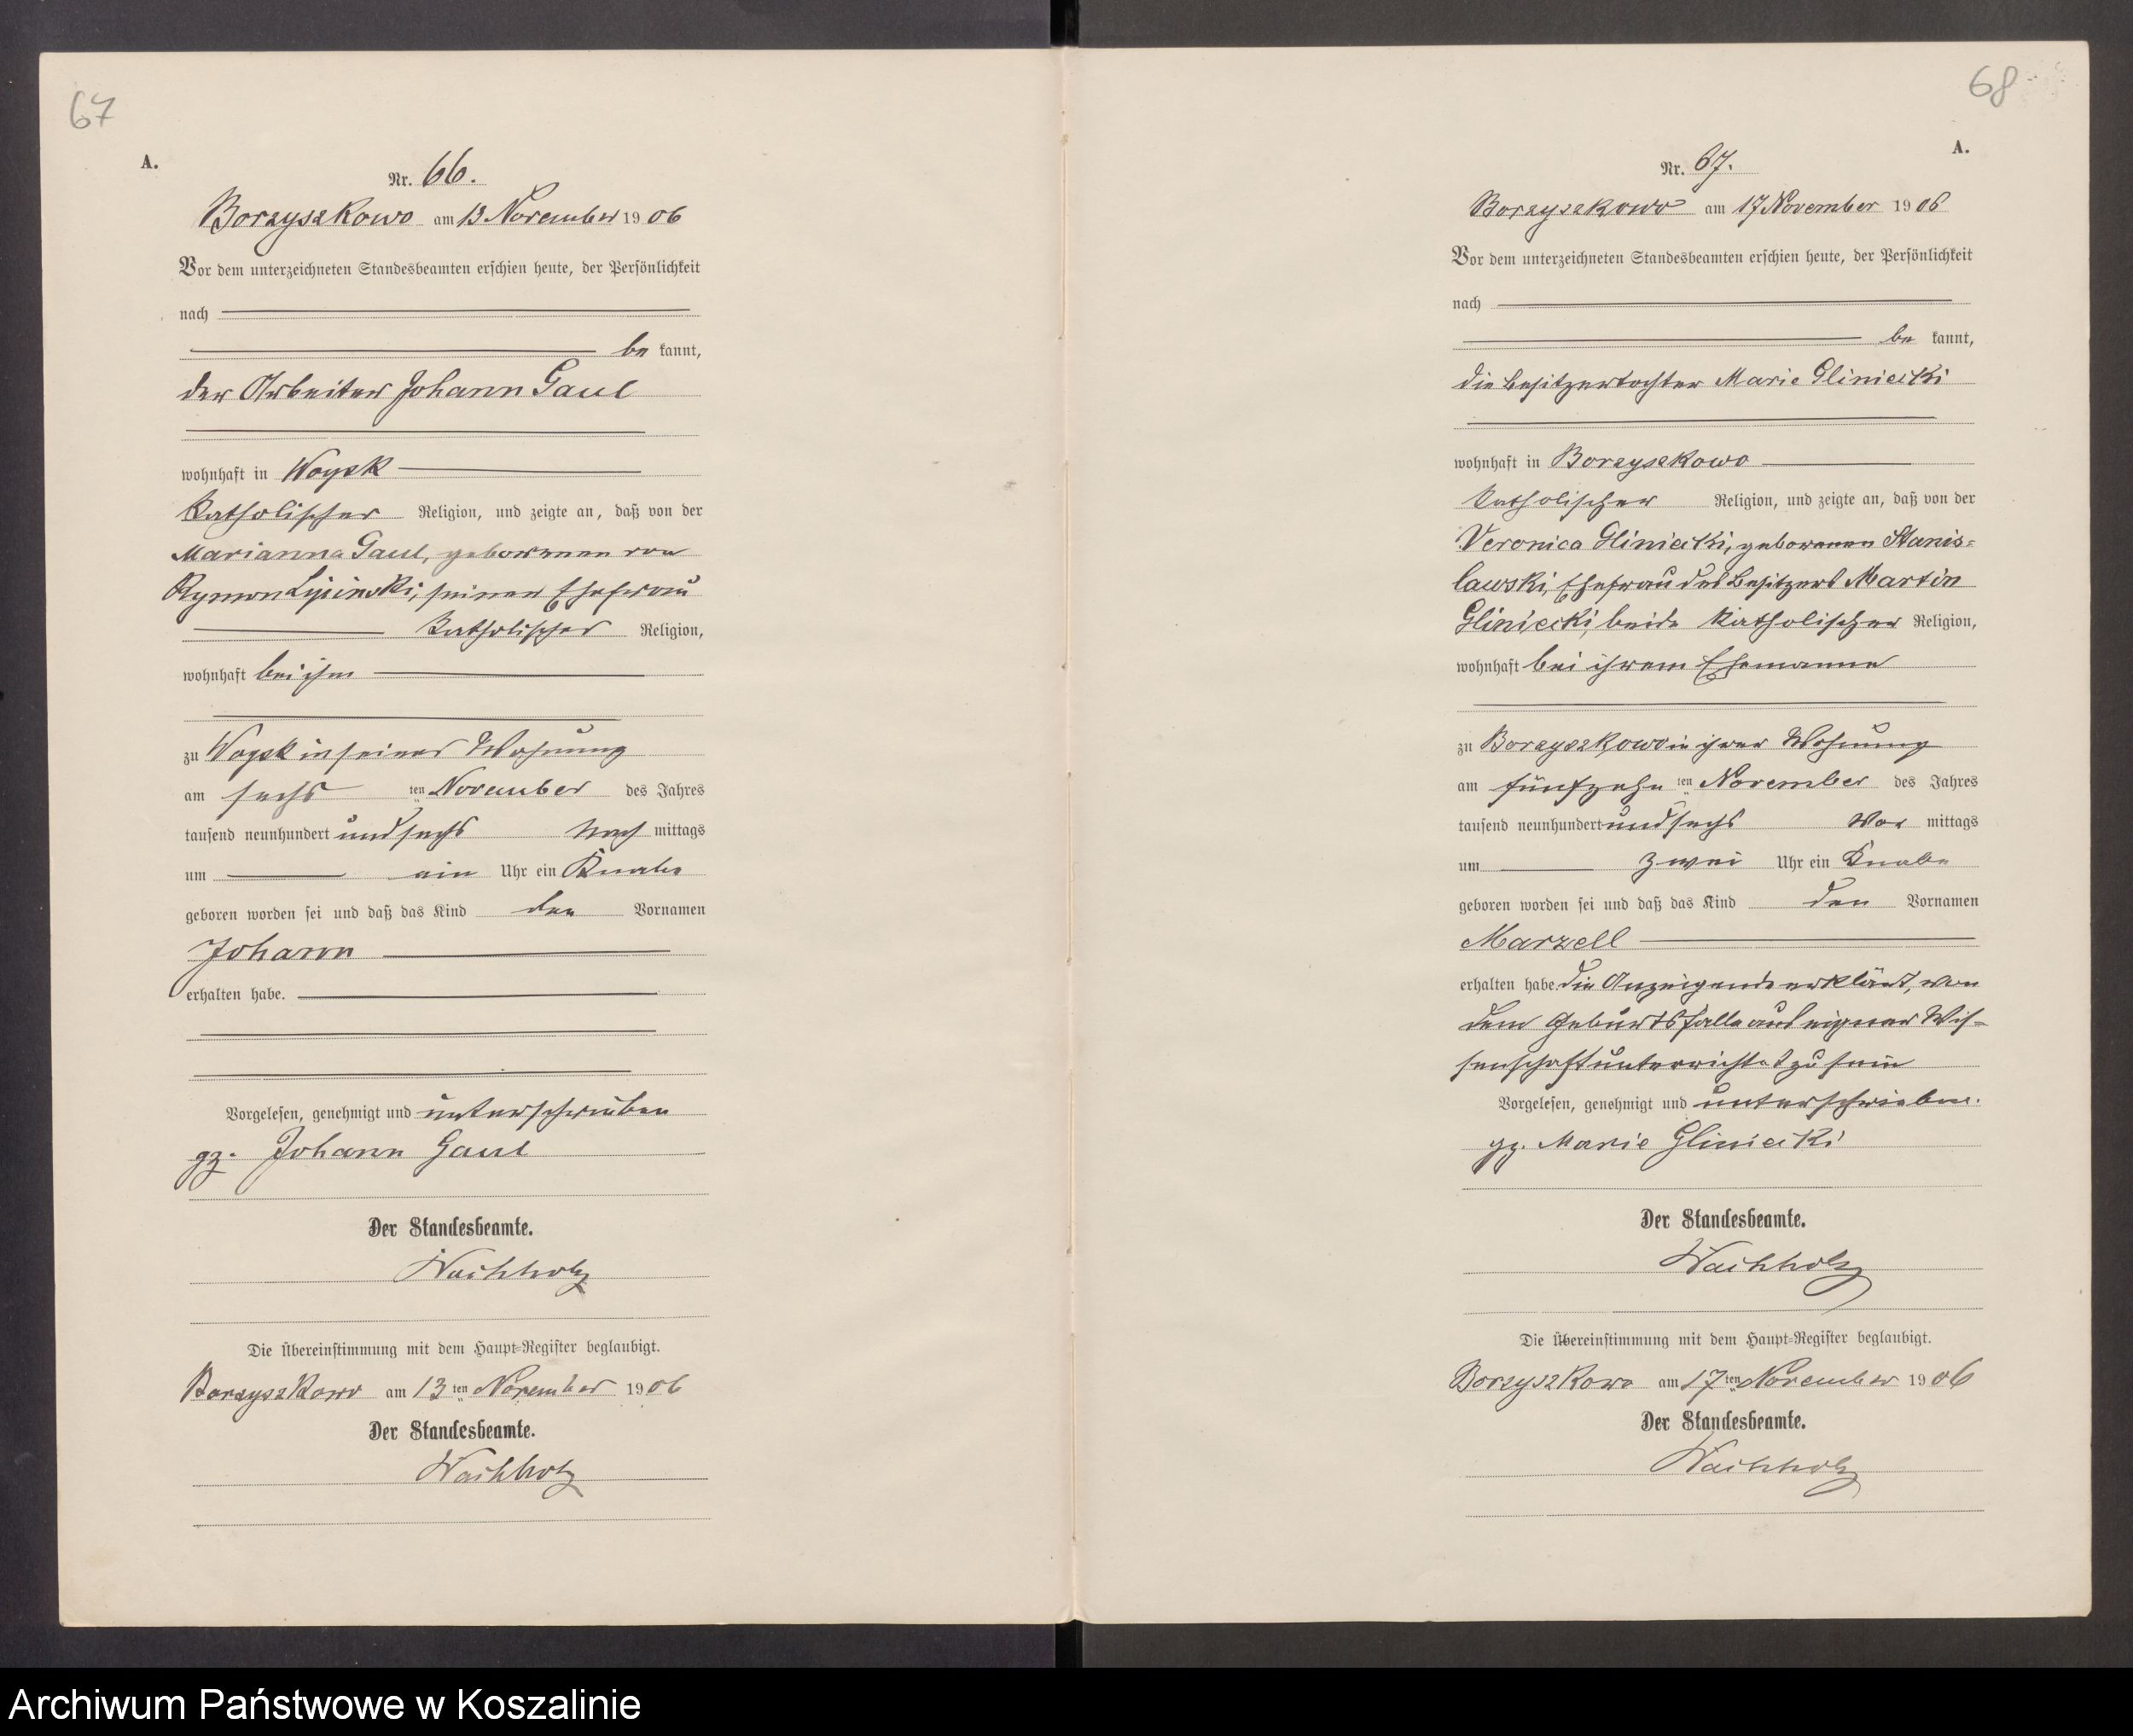 67
A.
Nr. 66.
Borzyszkowo am 13 November 1906
Vor dem unterzeichneten Standesbeamten erschien heute, der Persönlichkeit
nach
be kannt,
der Arbeiter Johann Gaul
wohnhaft in Woysk
katholischer Religion, und zeigte an, daß von der
Marianna Gaul, geborenen von
Rymon Lipinski, seiner Ehefrau
katholischer Religion,
wohnhaft bei ihm
zu Woysk in seiner Wohnung
am sechs ten November des Jahres
tausend neunhundert und sechs Nach mittags
um ein Uhr ein Knabe
geboren worden sei und daß das Kind den Vornamen
Johann
erhalten habe.
Vorgelesen, genehmigt und unterschrieben
gz. Johann Gaul
Der Standesbeamte.
Wachholz
Die Übereinstimmung mit dem Haupt-Register beglaubigt.
Borzyszkowo am 13 ten November 1906
Der Standesbeamte.
Wachholz
68
A.
Nr. 67.
Borzyszkowo am 17 November 1906
Vor dem unterzeichneten Standesbeamten erschien heute, der Persönlichkeit
nach
be kannt,
die Besitzertochter Marie Gliniecki
wohnhaft in Borzyszkowo
katholischer Religion, und zeigte an, daß von der
Veronica Gliniecki, geborenen Stanis-
lawski, Ehefrau des Besitzers Martin
Gliniecki, beide katholischer Religion,
wohnhaft bei ihrem Ehemanne
zu Borzyszkowo in ihrer Wohnung
am fünfzehn ten November des Jahres
tausend neunhundert und sechs Vor mittags
um zwei Uhr ein Knabe
geboren worden sei und daß das Kind den Vornamen
Marzell
erhalten habe. Die Anzeigende erklärt, von
dem Geburtsfalle aus eigner Wis-
senschaft unterrichtet zu sein
Vorgelesen, genehmigt und unterschrieben.
gz. Marie Gliniecki
Der Standesbeamte.
Wachholz
Die Übereinstimmung mit dem Haupt-Register beglaubigt.
Borzyszkowo am 17 ten November 1906
Der Standesbeamte.
Wachholz
Archiwum Państwowe w Koszalinie